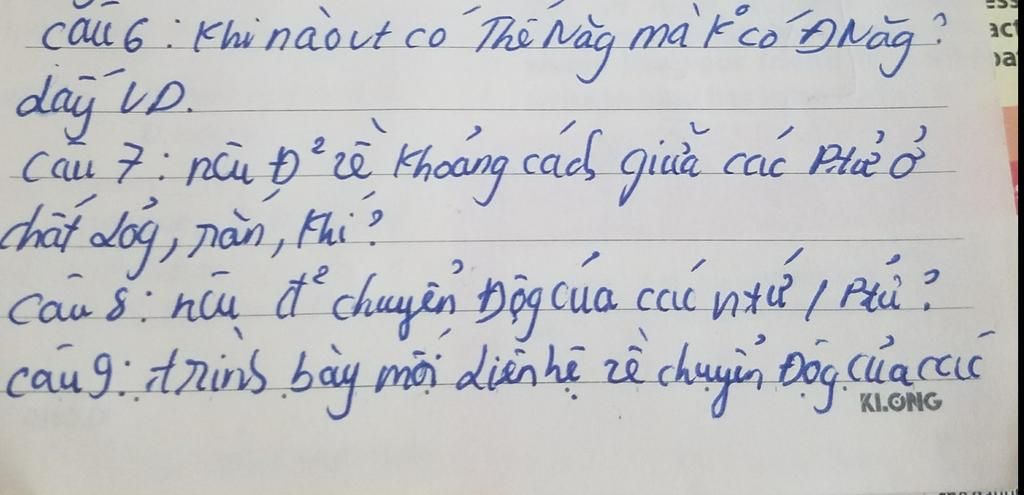 Câu 6: Khi nào vt có Thế Năg mà K° có ĐNăg?
Lấy VD.
Câu 7: nêu Đ² về khoảng cách giữa các Ptử ở
chất lỏg, rắn, khí?
Câu 8: nêu đ² chuyển Độg của các ntử / Ptử?
Câu 9: trình bày mối liên hệ về chuyển Độg của các
KLONG